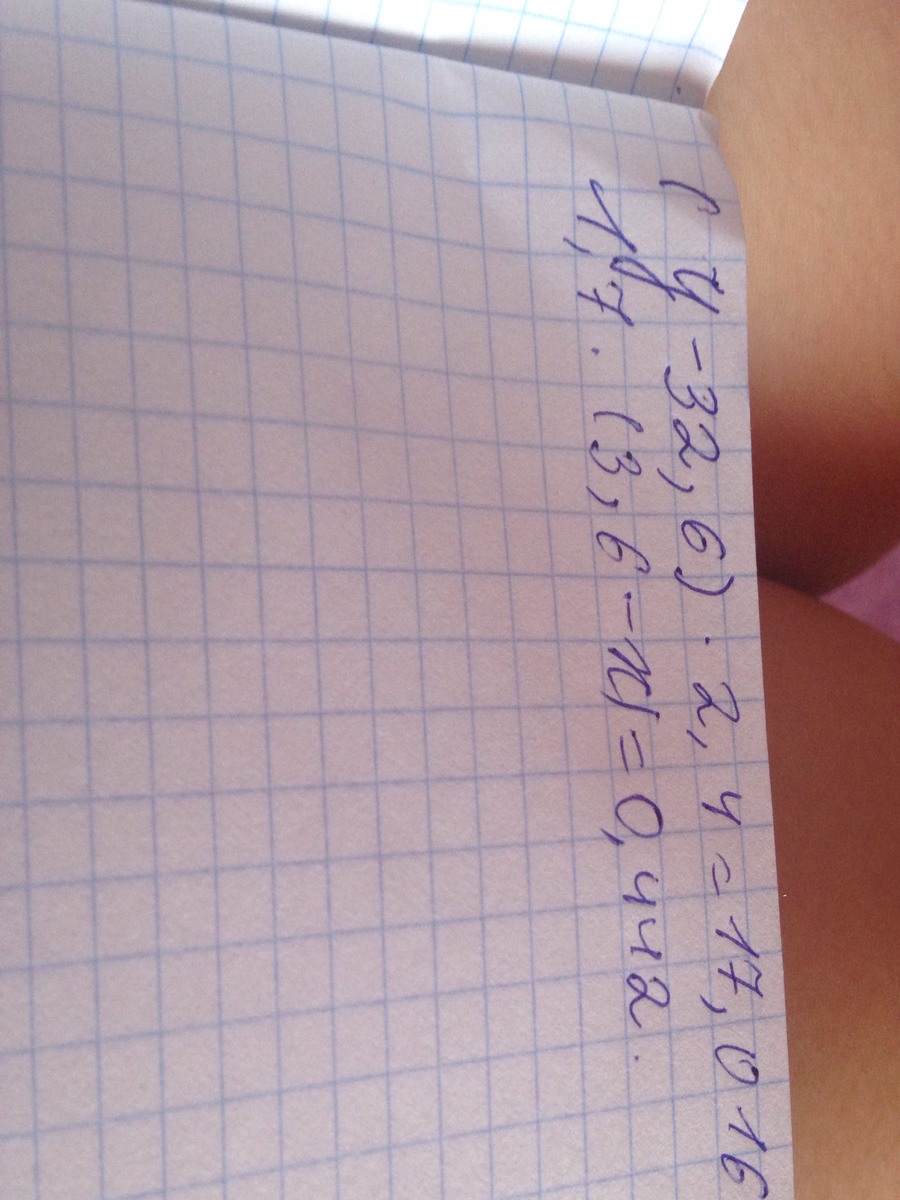 (у - 32,6) · 2,4 = 17,016
1,7 · (3,6 - х) = 0,442.